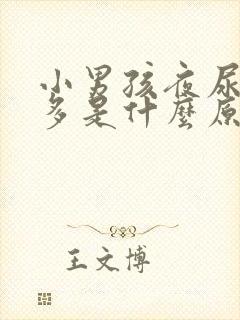 小男孩夜尿
多是什麼原
王文博